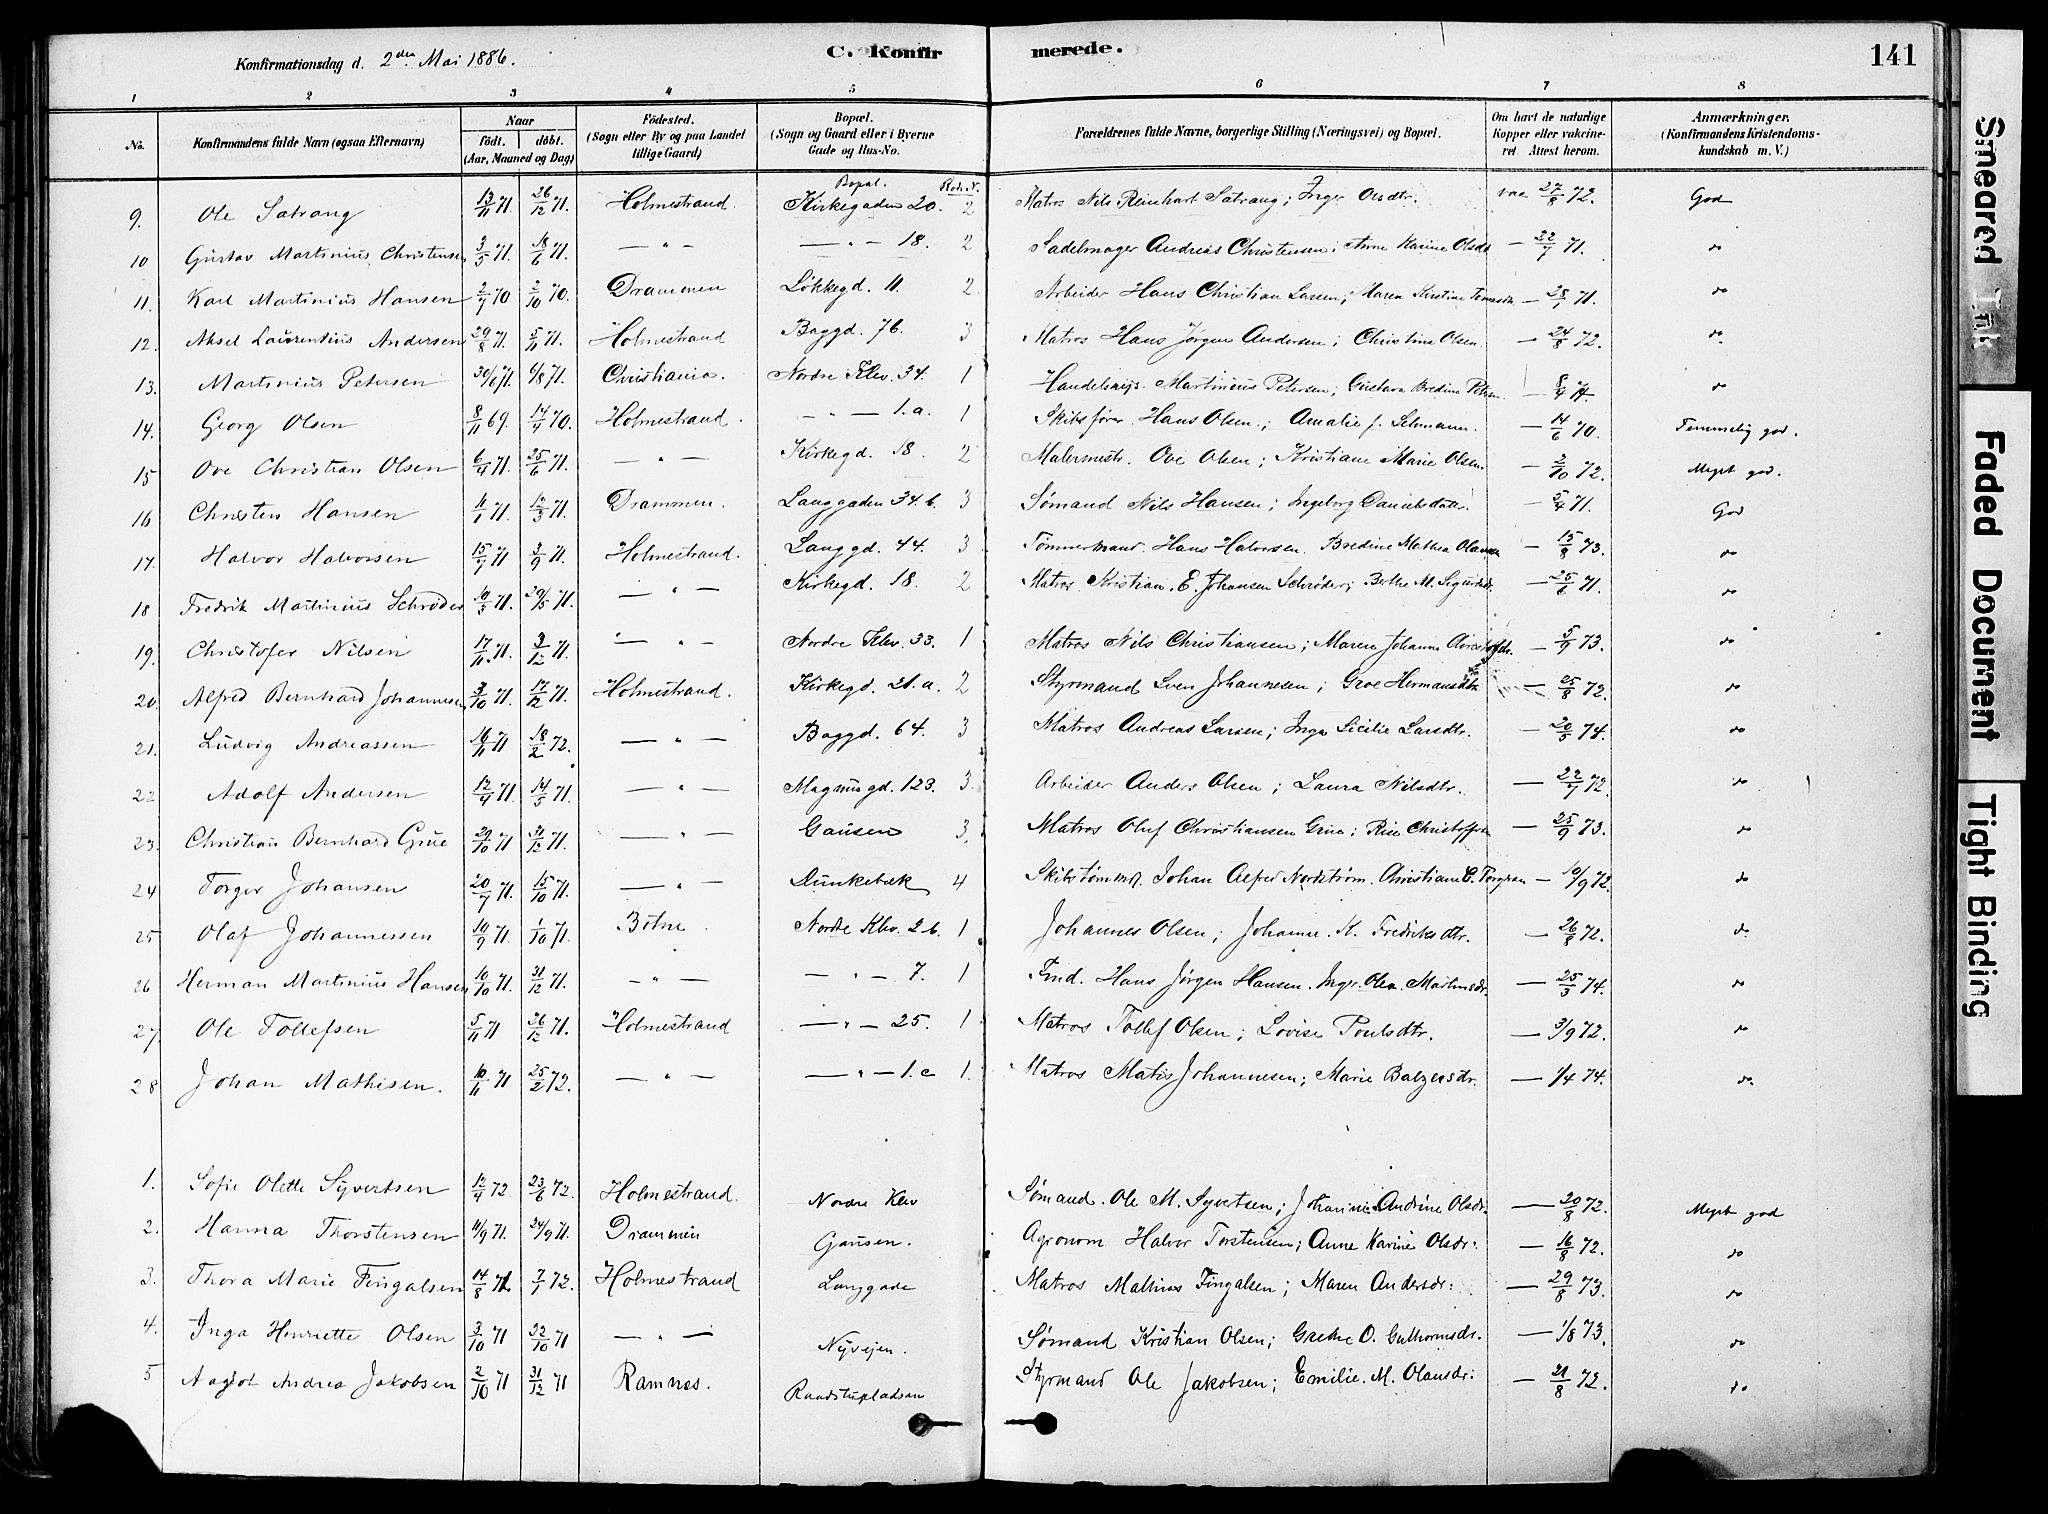 Konfirmationsdag d. 2den Mai 1886.
C. Konfirmerede.
141
1 2 3 4 5 6 7 8
No.
Konfirmandens fulde Navn (ogsaa Efternavn)
Naar
födt. döbt.
(Aar, Maaned og Dag)
Födested.
(Sogn eller By og paa Landet tillige Gaard)
Bopæl.
(Sogn og Gaard eller i Byerne Gade og Hus-No.
Forældrenes fulde Navne, borgerlige Stilling (Næringsvei) og Bopæl.
Om havt de naturlige Kopper eller vakcineret. Attest herom.
Anmærkninger.
(Konfirmandens Kristendomskundskab m. V.)
Bopæl. Rode N.
9. Ole Satrang 13/11 71. 26/12 71. Holmestrand. Kirkegaden 20. 2 Matros Nils Reinhart Satrang; Inger Olsdtr. vac 27/8 72. God
10 Gustav Martinius Christensen 3/5 71. 18/6 71. — " — — " — 18. 2 Sadelmager Andreas Christensen; Anne Karine Olsdt — 22/7 71. do
11. Karl Martinius Hansen 2/7 70 2/10 70. Drammen Løkkegd. 11. 2 Arbeider Hans Christian Larsen; Maren Kirstine — 28/1 71. do
12. Aksel Laurentius Andersen 29/8 71. 5/11 71. Holmestrand Baggd. 76. 3 Matros Hans Jørgen Andersen; Christine Olsen. — 24/8 72. do
13. Martinius Petersen 30/6 71. 6/8 71. Christiania. Nordre Klev. 34. 1 Martinius Petersen; Gustava Bredine Petersen — 8/4 do
14. Georg Olsen 8/11 69. 14/4 70. Holmestrand. — " — 1.a. 1 Skibsfører Hans Olsen; Amalie f. — 14/6 70. Temmelig god.
15 Ove Christian Olsen 6/4 71. 25/6 71. — " — Kirkegd. 18. 2 Malermestr. Ove Olsen; Kristiane Marie Olsen. — 2/10 72. Meget god.
16 Christen Hansen 11/1 71. 12/3 71. Drammen. Langgaden 34.b. 3 Sømand Nils Hansen; Ingeborg Danielsdatter. — 5/4 71. God
17. Halvor Halvorsen 15/7 71 3/9 71. Holmestrand. Langgd. 44. 3 Tømmermand. Hans Halvorsen. Bredine Mathea — 15/8 73. do
18 Fredrik Martinius Schrøder 10/3 71. 29/5 71. — " — Kirkegd. 18. 2 Matros Kristian. E. Johansen Schrøder; Berthe M. — 25/6 71. do
19. Christofer Nilsen 17/11 71. 3/12 71. — " — Nordre Klev. 33. 1 Matros Nils Christiansen; Maren Johanne — 5/9 73. do
20. Alfred Bernhard Johannesen 3/10 71. 17/12 71. Holmestrand. Kirkegd. 21.a. 2 Styrmand Sven Johannesen; Hermansdtr — 25/8 72. do
21. Ludvig Andreassen 16/11 71 18/2 72. — " — Baggd. 64. 3 Matros Andreas Larsen; Inga Sicilie Larsdtr. — 20/5 74. do
22 Adolf Andersen 12/4 71. 14/5 71. — " — Magnusgd. 123. 3. Arbeider Anders Olsen; Laura Nilsdtr. — 22/7 72. do
23. Christian Bernhard Grue 29/10 71 31/12 71. — " — Gausen 3. Matros Oluf Christiansen Grue; Christoffersen — 25/9 73. do
24 Torger Johansen 20/7 71. 15/10 71. — " — Dunkebæk 4 Skibstømmd. Johan Alfred Nordstrøm. Christiane C. — 10/9 72. do
25 Olaf Johannessen 10/9 71. 1/10 71. Botne. Nordre Klev. 26. 1 Johannes Olsen; Johanne. K. Fredriksdtr. — 26/8 72. do
26 Herman Martinius Hansen 10/10 71. 31/12 71. — " — — " — 7. 1 Hans Jørgen Hansen. Inger. Olea. Martinsdr. — 25/3 74. do
27 Ole Tollefsen 5/11 71 26/12 71. Holmestrand — " — 25. 1 Matros Tollef Olsen; Lovise Poulsdtr. — 3/9 72. do
28 Johan Mathisen. 10/11 71 25/2 72. — " — — " — 1.c 1. Matros Matis Johannesen; Marie Balzersdr. — 1/4 74. do
1. Sofie Olette Syvertsen 12/4 72 23/6 72. Holmestrand. Nordre Klev Sømand. Ole M. Syvertsen; Johanne Andrine Olsdr. — 20/8 72. Meget god
2. Hanna Thorstensen 11/9 71. 24/9 71. Drammen Gausen. Agronom Halvor Torstensen; Anne Karine Olsdr: — 16/8 72. do
3. Thora Marie Fingalsen 14/8 71 7/1 72. Holmestrand Langgade Matros Mathias Fingalsen; Maren Andersdr: — 29/8 73. do
4. Inga Henriette Olsen 3/10 71 22/10 71 — " — Nyvejen. Sømand Kristian Olsen; Grethe O. Guthormsdr. — 1/8 73. do
5 Aagot Andrea Jakobsen 2/10 71 31/12 71 Ramnes. Raadstupladsen Styrmand Ole Jakobsen; Emilie. M. Olausdr: — 21/8 72. do
Smeared Ink
Faded Document
Tight Binding